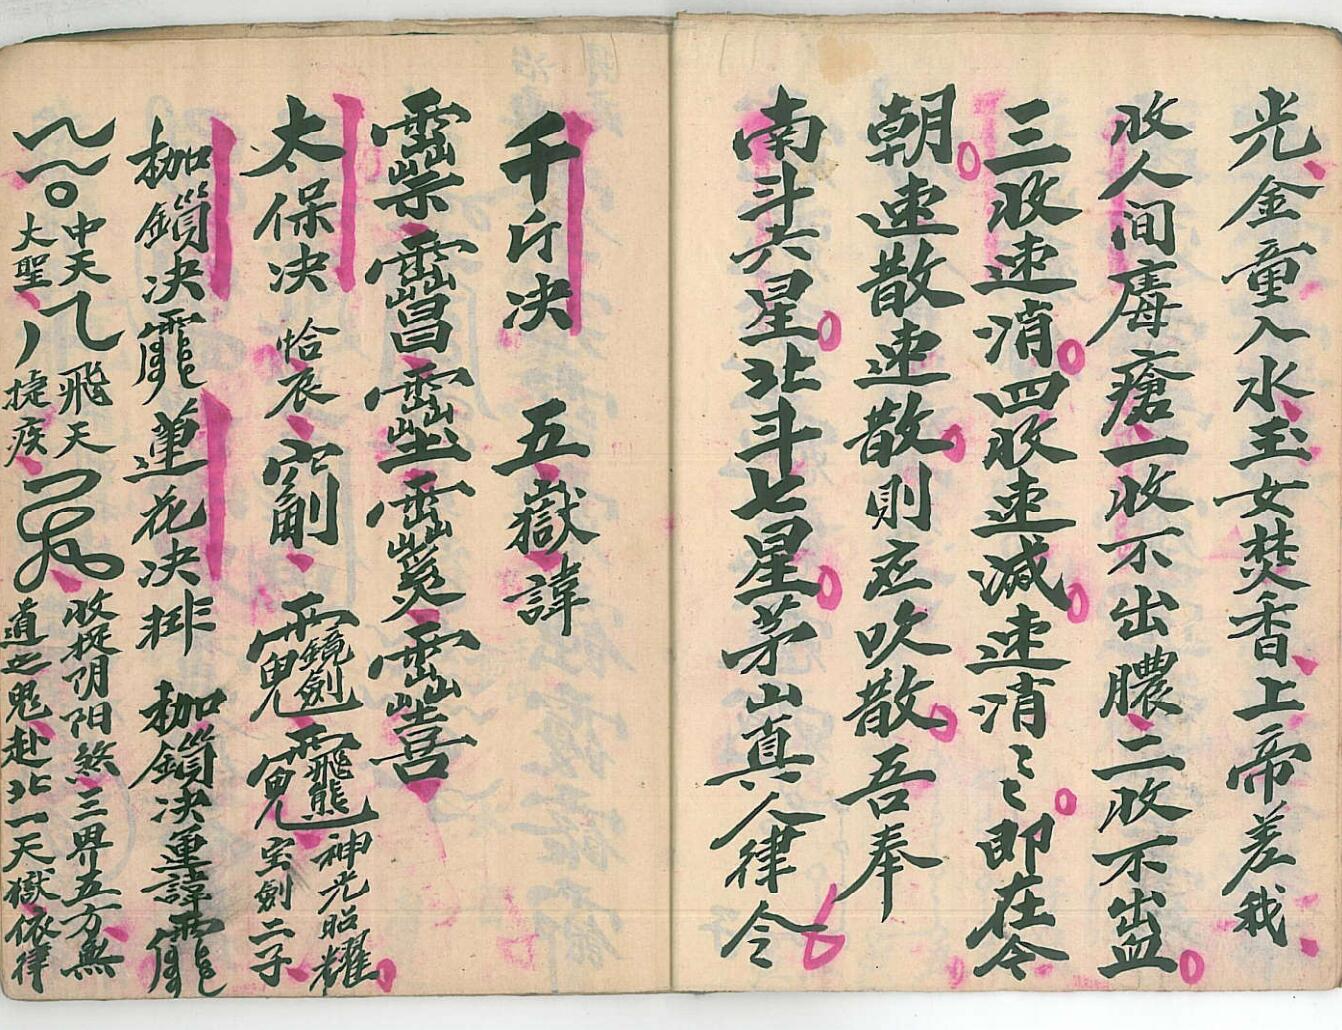 光金童入水玉女焚香上帝差我
收人间毒瘡一收不出膿二收不出血
三收速消四收速减速消〻〻即在今
朝速散速散則应吹散吾奉
南斗六星北斗七星茅山真人律令
千斤决 五嶽諱
太保决 恰衣 神光昭耀
宝劍二子
枷鎖决 蓮花决排 枷鎖决重諱
中天 飛天 收捉阴阳煞三界五方無
大聖 捷疾 道之鬼赴北一天獄依律